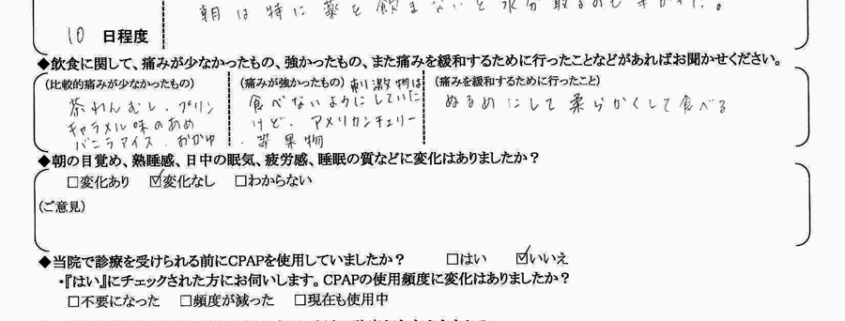 朝は特に薬を飲まないと水分取るのも辛かった。
10 日程度
◆飲食に関して、痛みが少なかったもの、強かったもの、また痛みを緩和するために行ったことなどがあればお聞かせください。
(比較的痛みが少なかったもの) (痛みが強かったもの) 刺激物は (痛みを緩和するために行ったこと)
茶わんむし、プリン 食べないようにしていた ぬるめにして柔らかくして食べる
キャラメル味のあめ けど、アメリカンチェリー
バニラアイス、おかゆ 等果物
◆朝の目覚め、熟睡感、日中の眠気、疲労感、睡眠の質などに変化はありましたか?
□変化あり ☑変化なし □わからない
(ご意見)
◆当院で診療を受けられる前にCPAPを使用していましたか? □はい ☑いいえ
・『はい』にチェックされた方にお伺いします。CPAPの使用頻度に変化はありましたか?
□不要になった □頻度が減った □現在も使用中